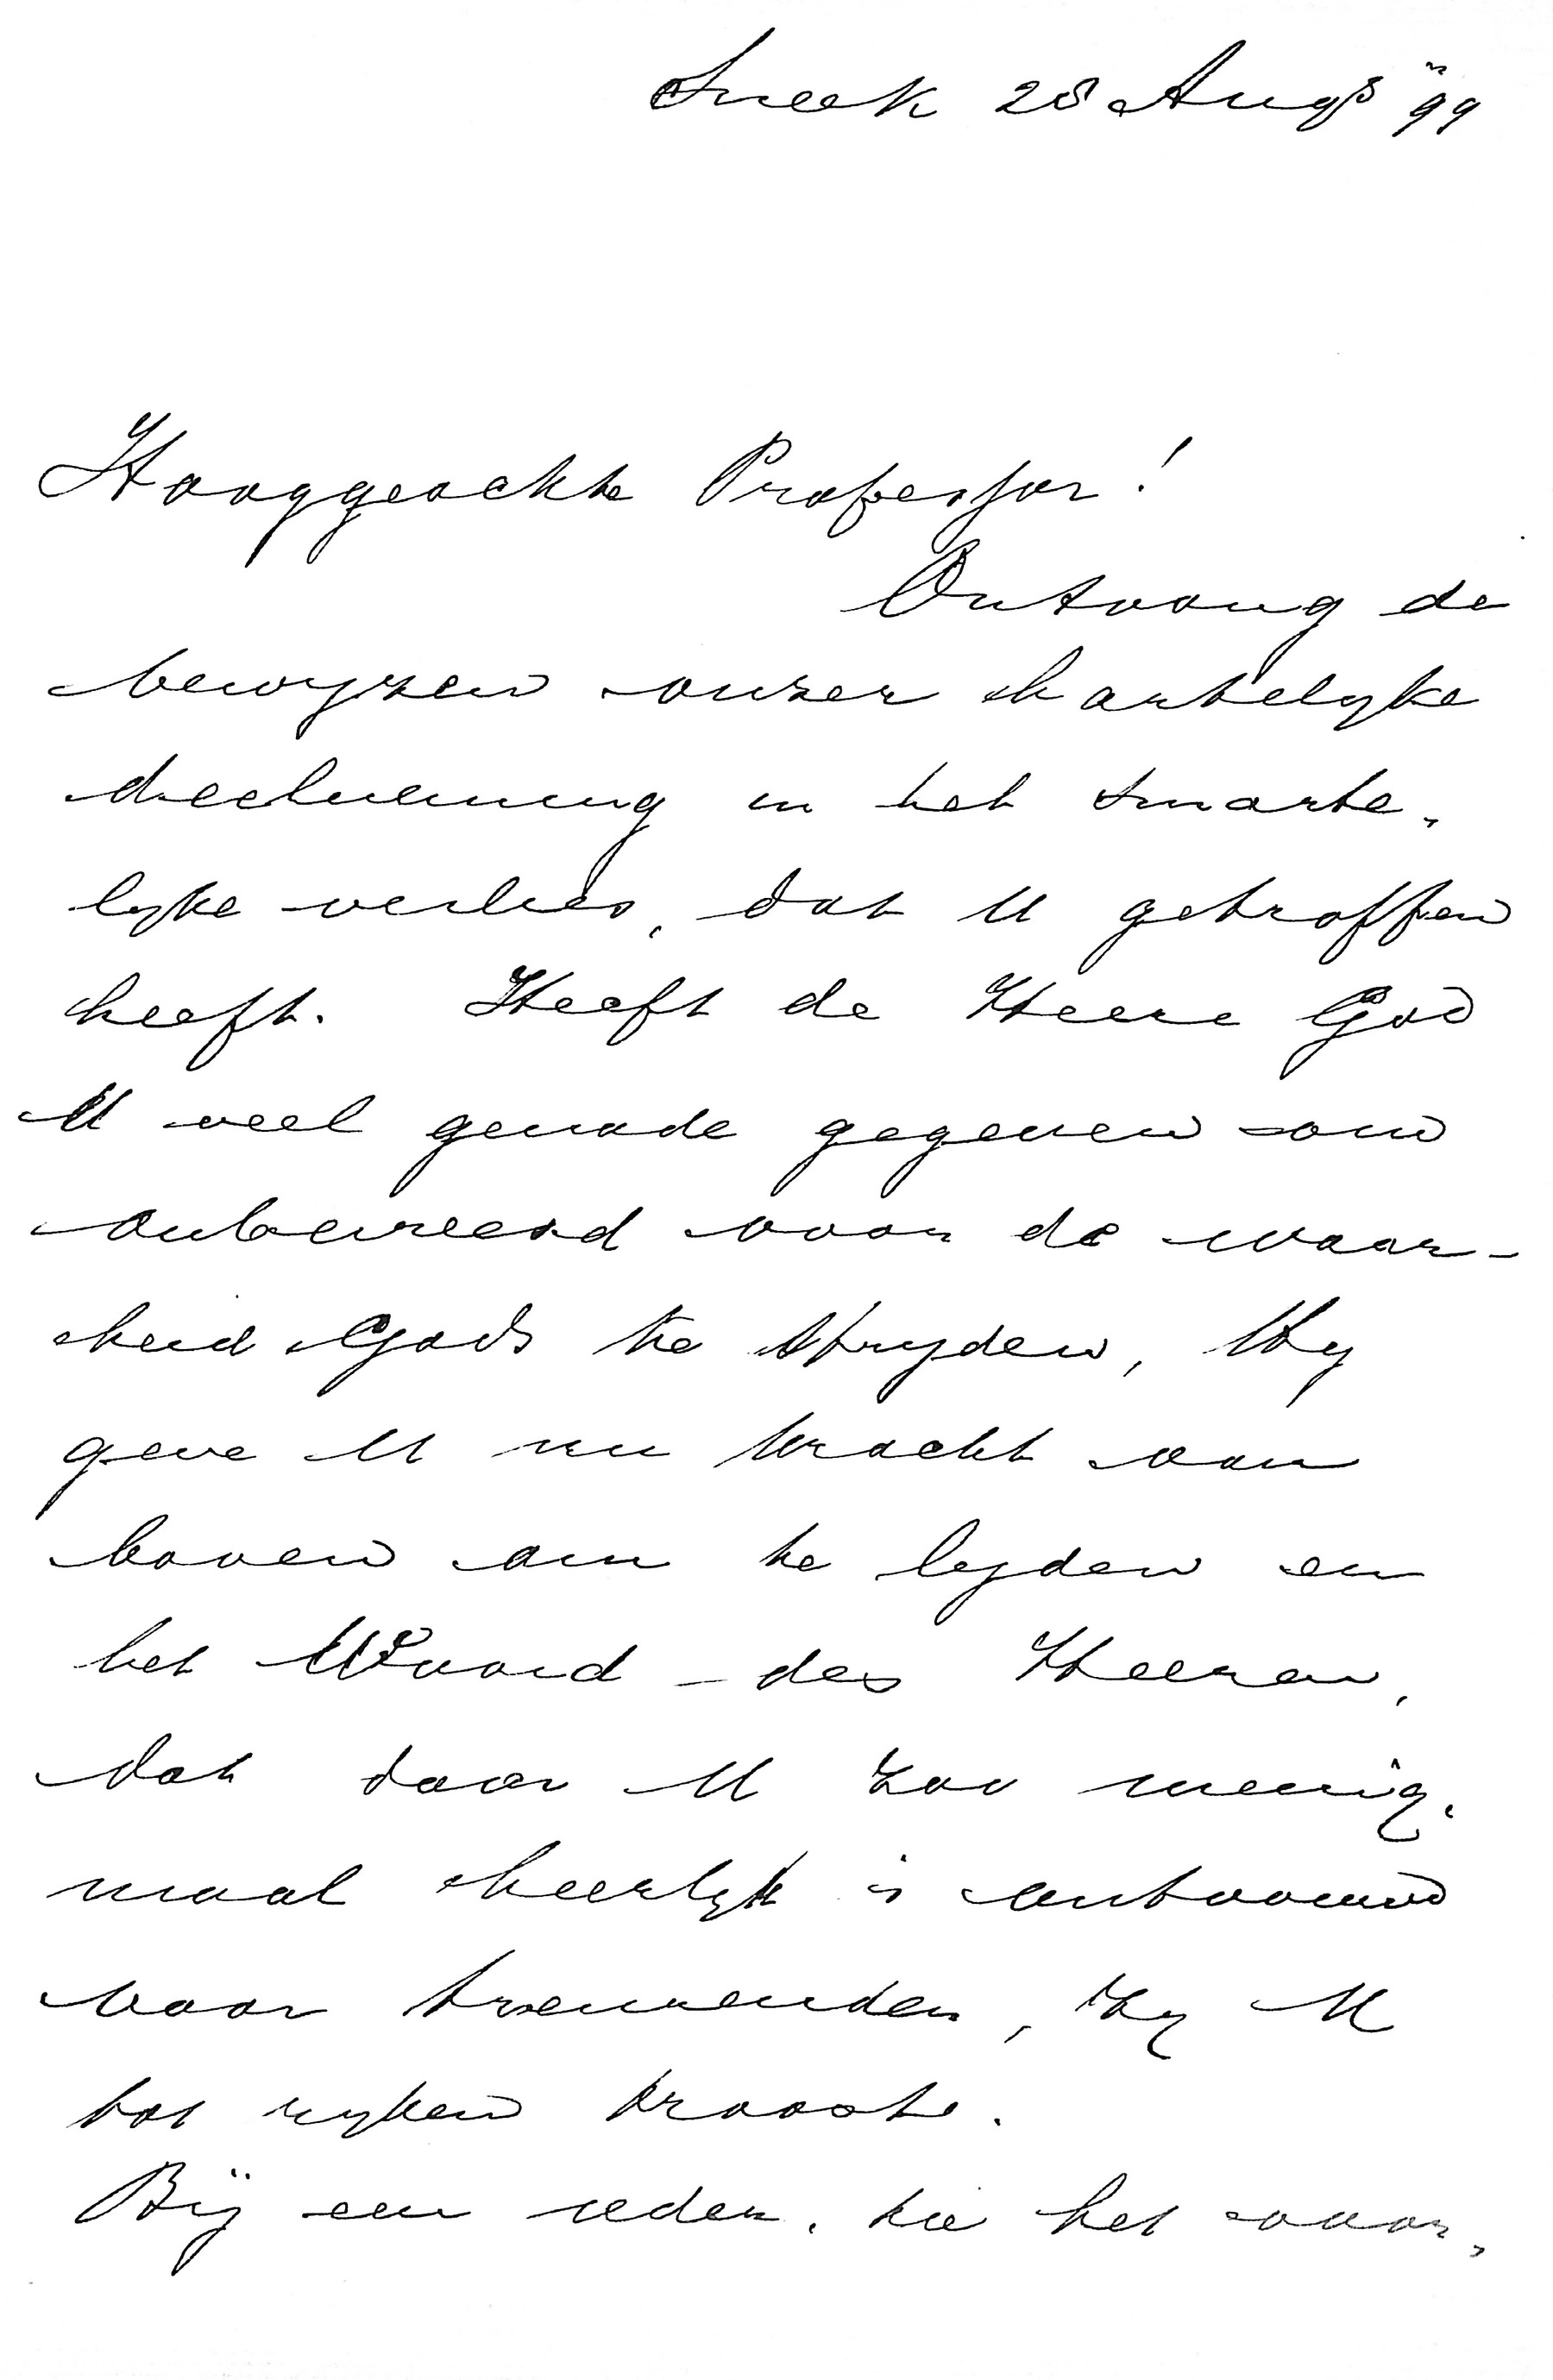 Sneek 28 Augs "99
Hooggeachte Professor!
Ontvang de
bewyzen onzer hartelyke
deelneming in het smarte-
lyke verlies, dat U getroffen
heeft. Heeft de Heere God
U veel genade gegeven om
onbevreesd voor de waar-
heid Gods te stryden, Hy
geve U nu kracht van
boven om te lyden en
het Woord des Heeren,
dat door U zoo menig-
maal heerlyk is ontvouwd
voor treurenden, zy U
tot ryken trooste.
Bij een ieder, die het voor-